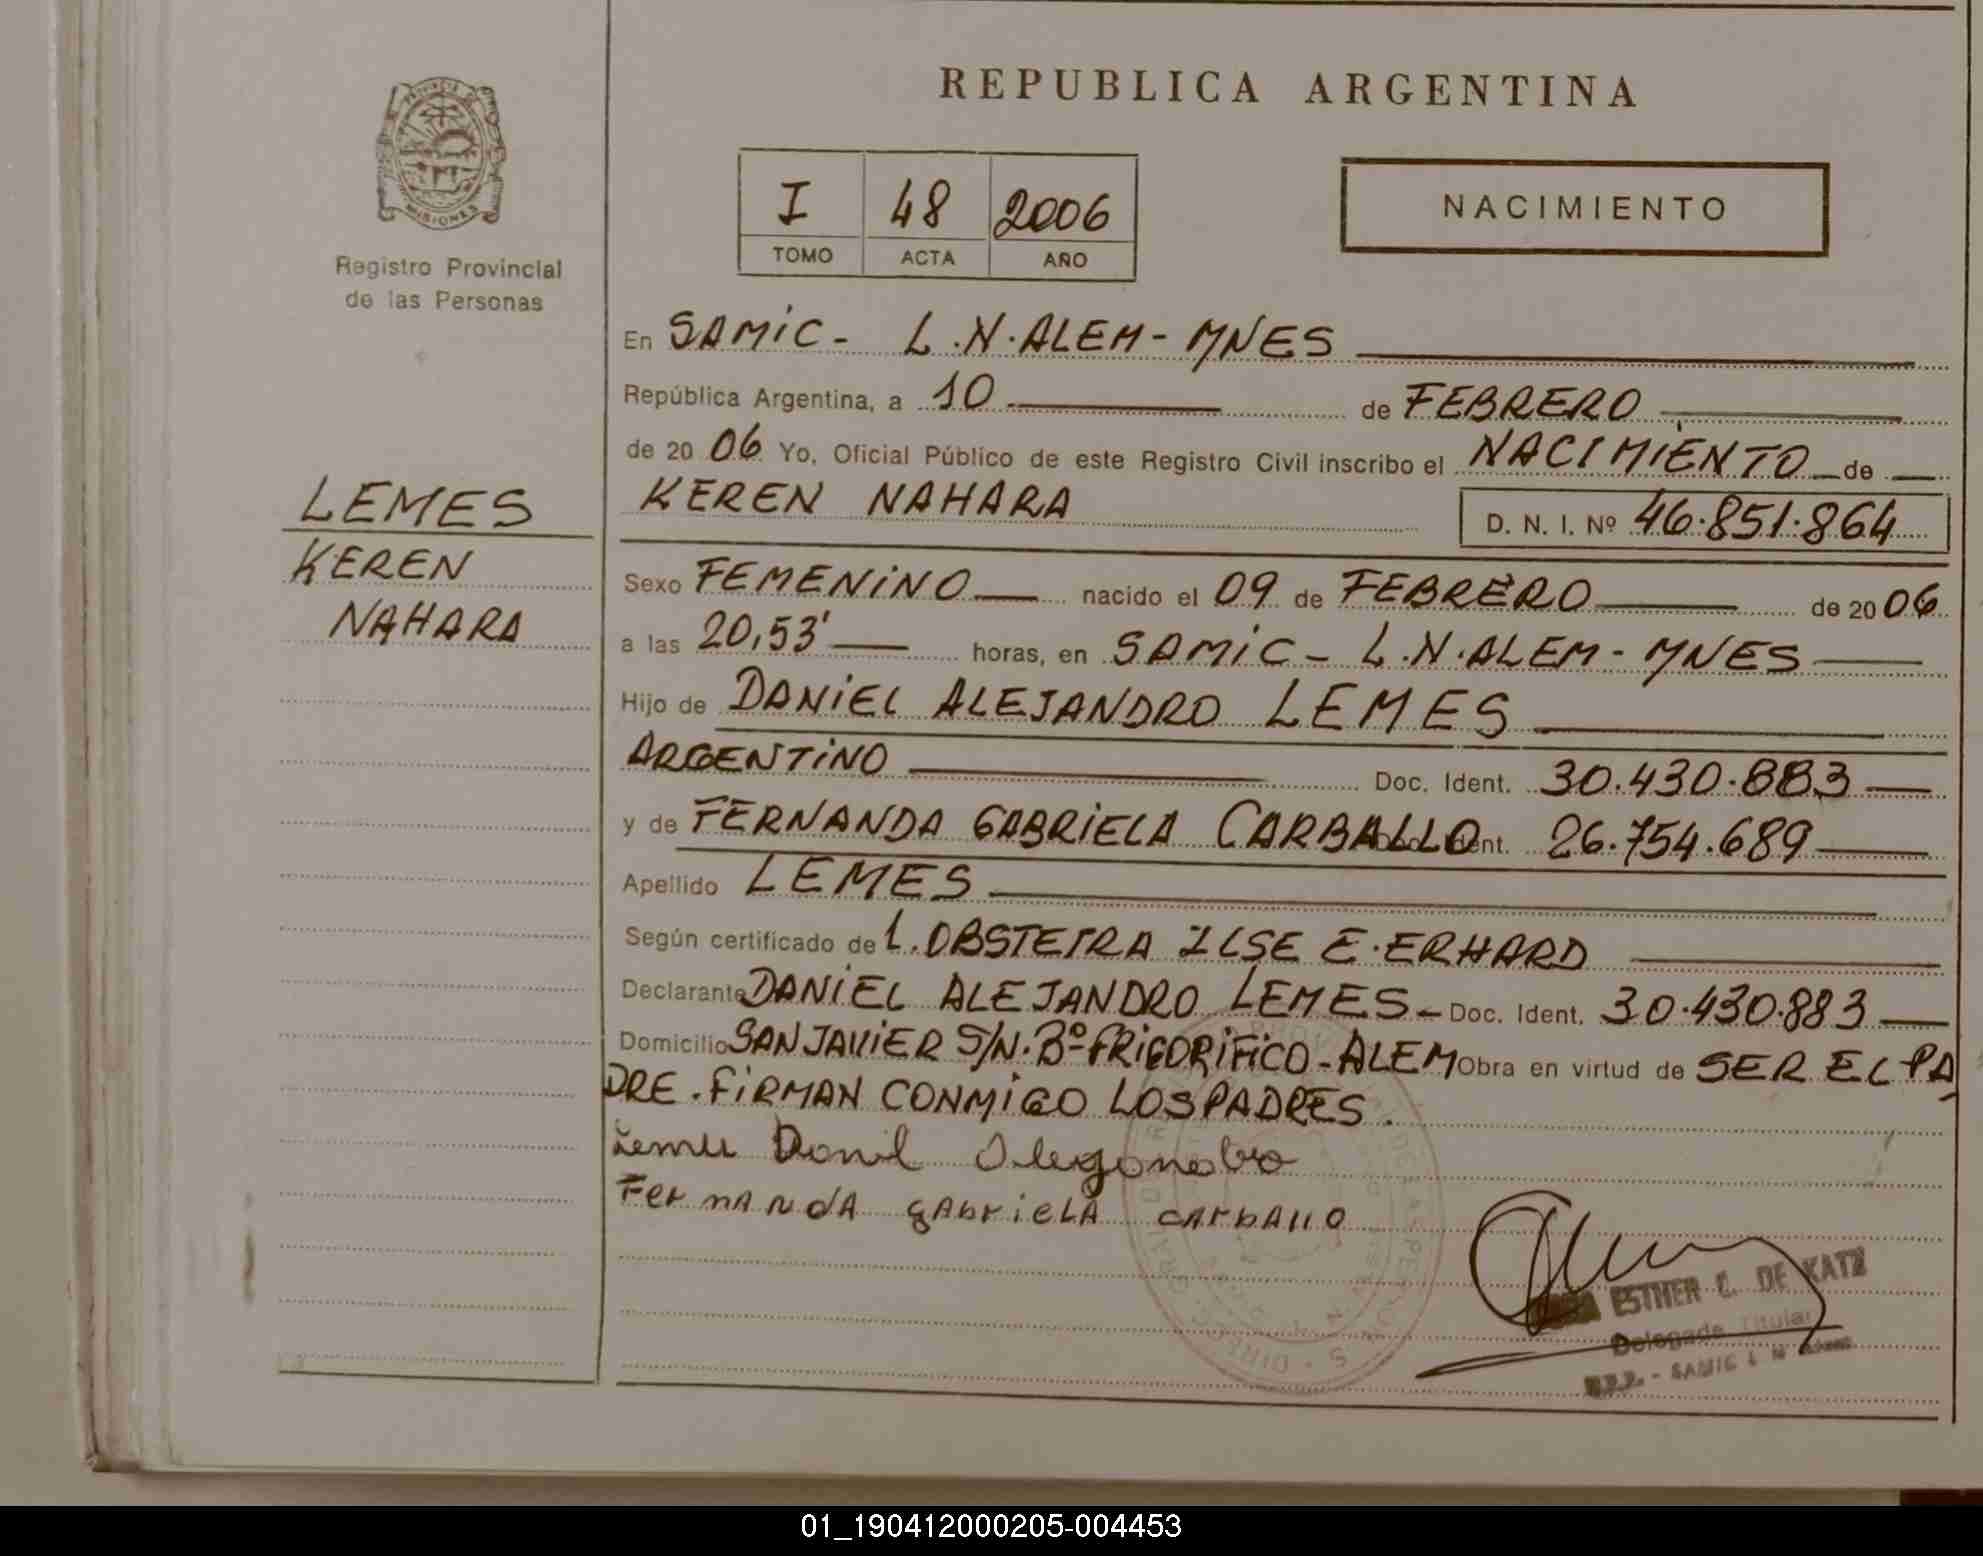 REPUBLICA ARGENTINA
PROVINCIA DE
MISIONES
Registro Provincial
de las Personas
I 48 2006
TOMO ACTA AÑO
NACIMIENTO
LEMES
KEREN
NAHARA
En SAMIC - L.N.ALEM - MNES
República Argentina, a 10 de FEBRERO
de 2006 Yo, Oficial Público de este Registro Civil inscribo el NACIMIENTO de
KEREN NAHARA D. N. I. Nº 46.851.864
Sexo FEMENINO nacido el 09 de FEBRERO de 2006
a las 20,53' horas, en SAMIC - L.N.ALEM - MNES
Hijo de DANIEL ALEJANDRO LEMES
ARGENTINO Doc. Ident. 30.430.883
y de FERNANDA GABRIELA CARBALLO Doc. Ident. 26.754.689
Apellido LEMES
Según certificado de L. OBSTETRA ILSE E. ERHARD
Declarante DANIEL ALEJANDRO LEMES - Doc. Ident. 30.430.883
Domicilio SAN JAVIER S/N. Bº FRIGORIFICO - ALEM Obra en virtud de SER EL PA
DRE. FIRMAN CONMIGO LOS PADRES.
Fernanda gabriela carballo
ESTHER C. DE KATZ
Delegada Titular
R.P.P. - SAMIC L N Alem
01_190412000205-004453